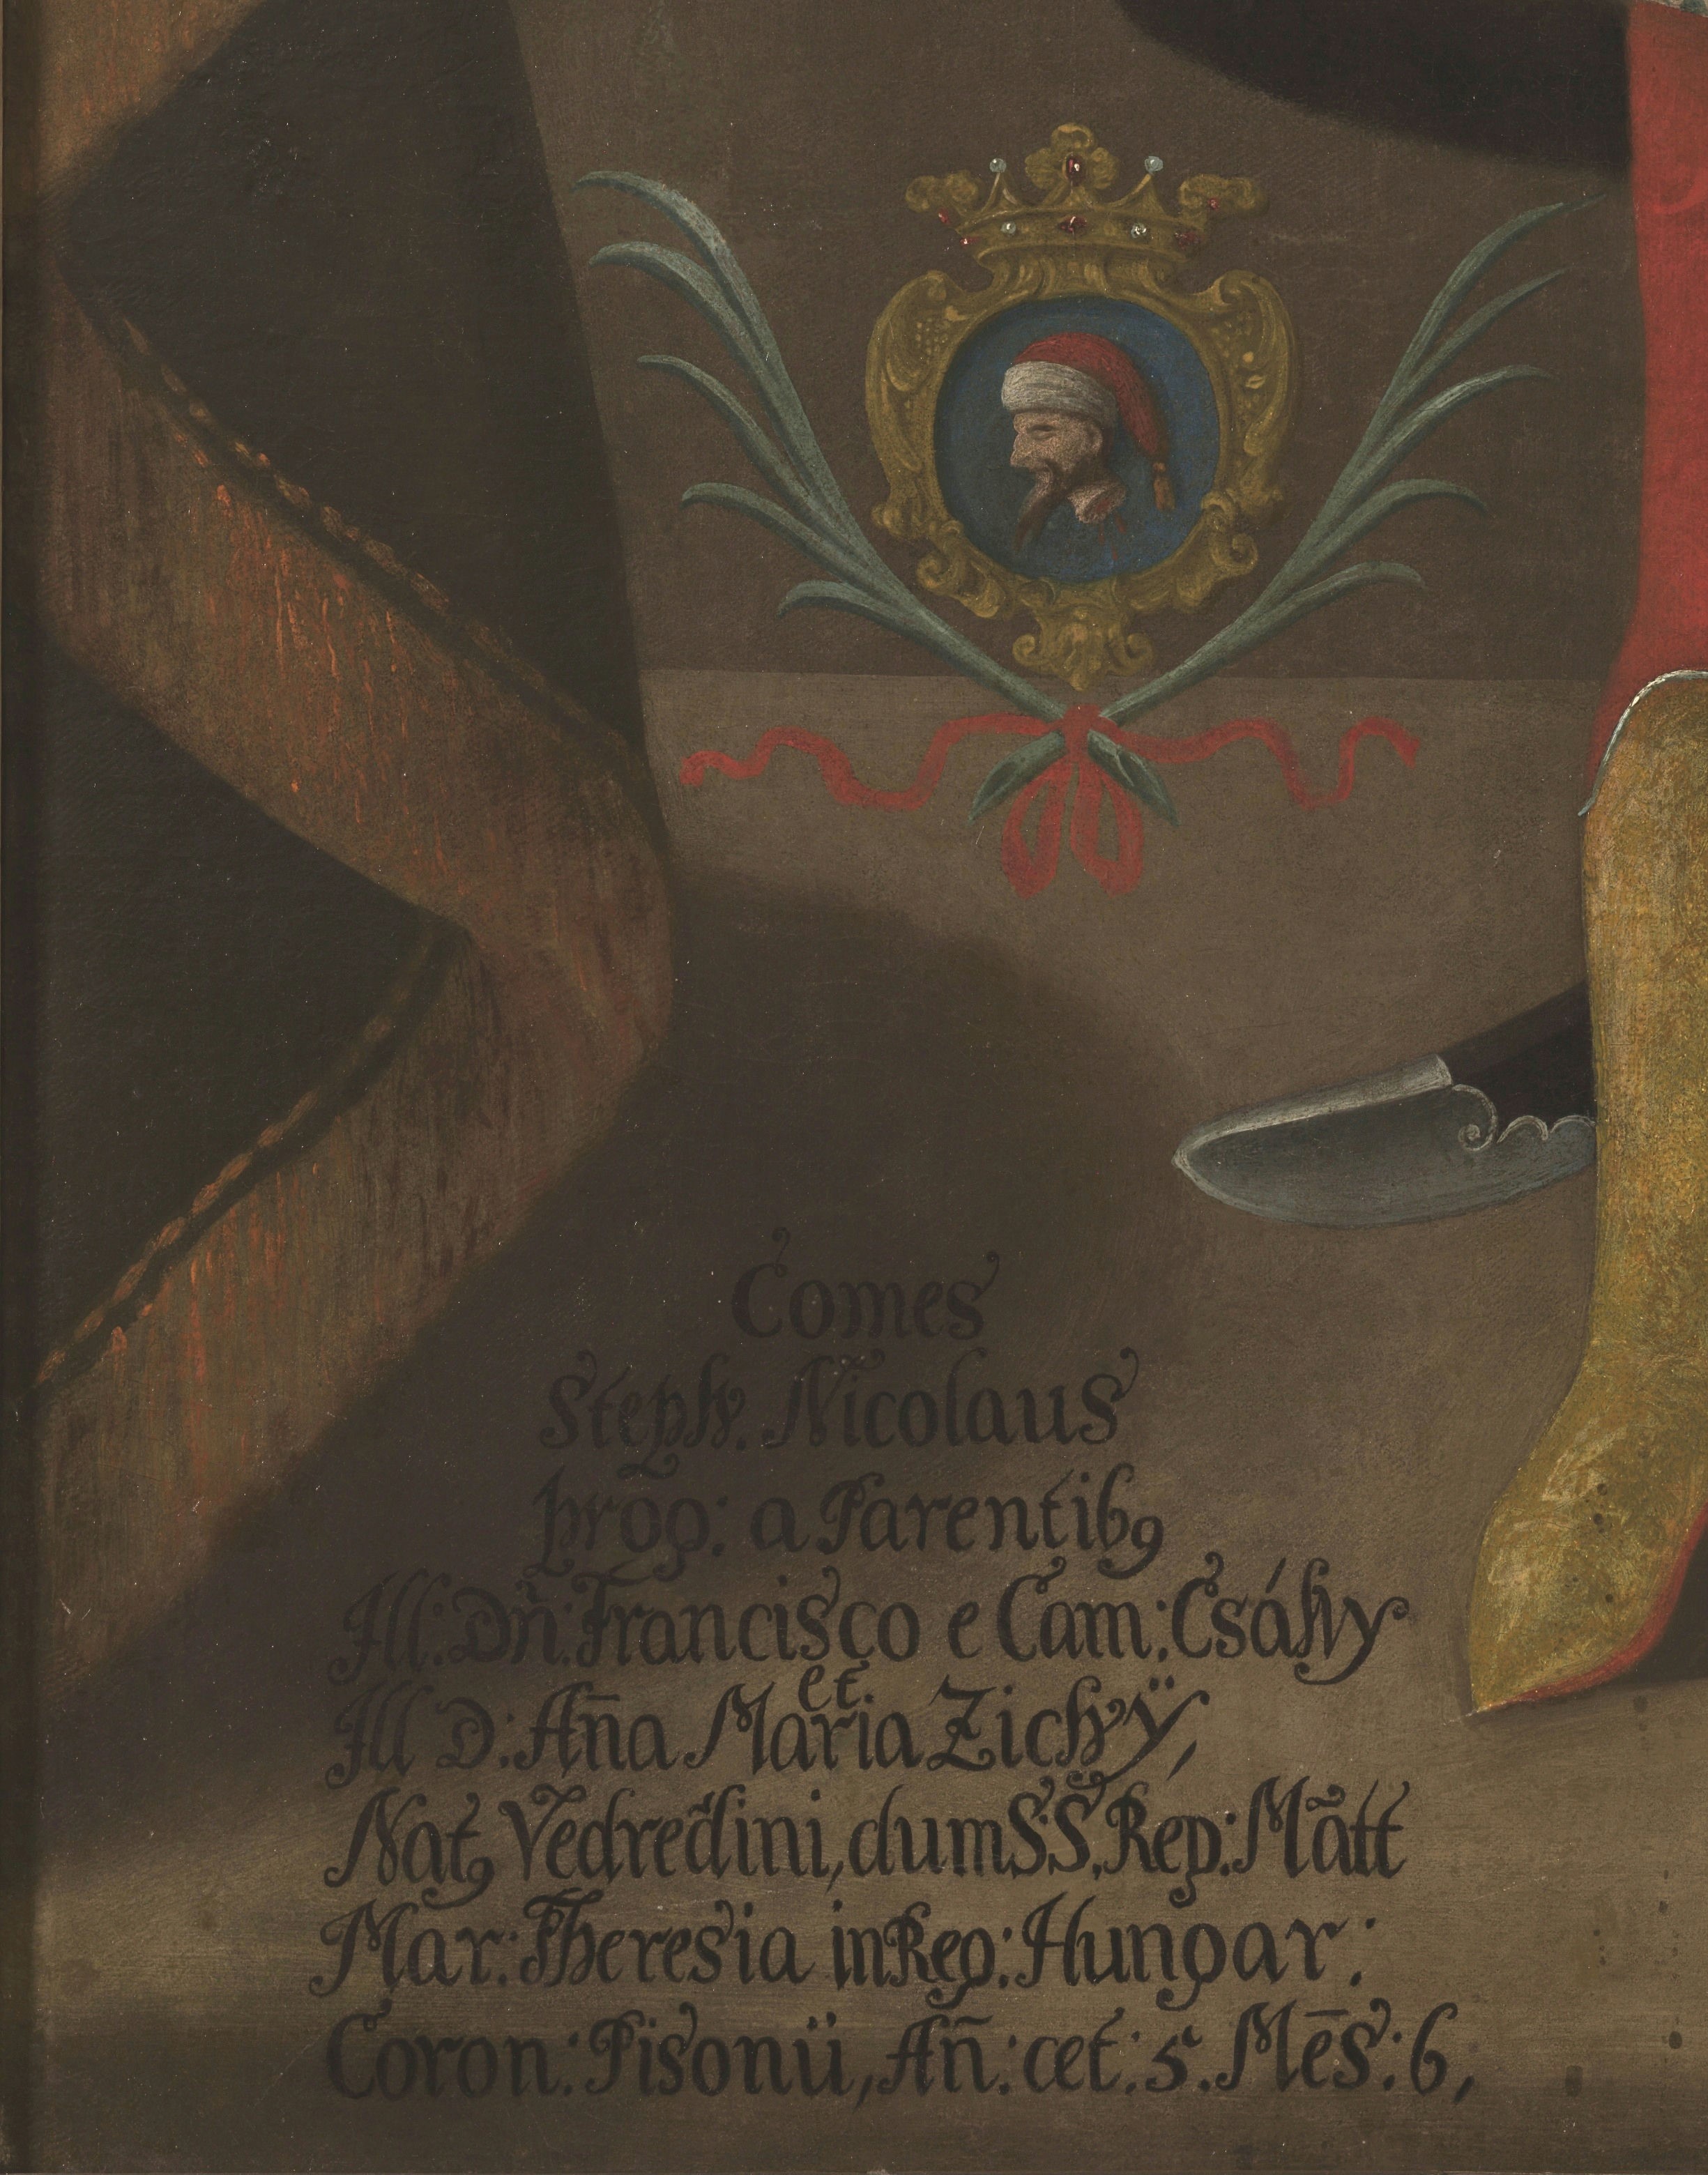 Comes
Steph. Nicolaus
prōg: a Parentibꝯ
Ill: Dn̄: Francisco e Com: Csáky
et.
Ill D: An̄a Maria Zichÿ,
Natꝯ Vedredini, dum S: S. Reg: Mātt
Mar: Theresia in Reg: Hungar:
Coron: Pisonii, An̄: æt: 5. Mēs: 6,